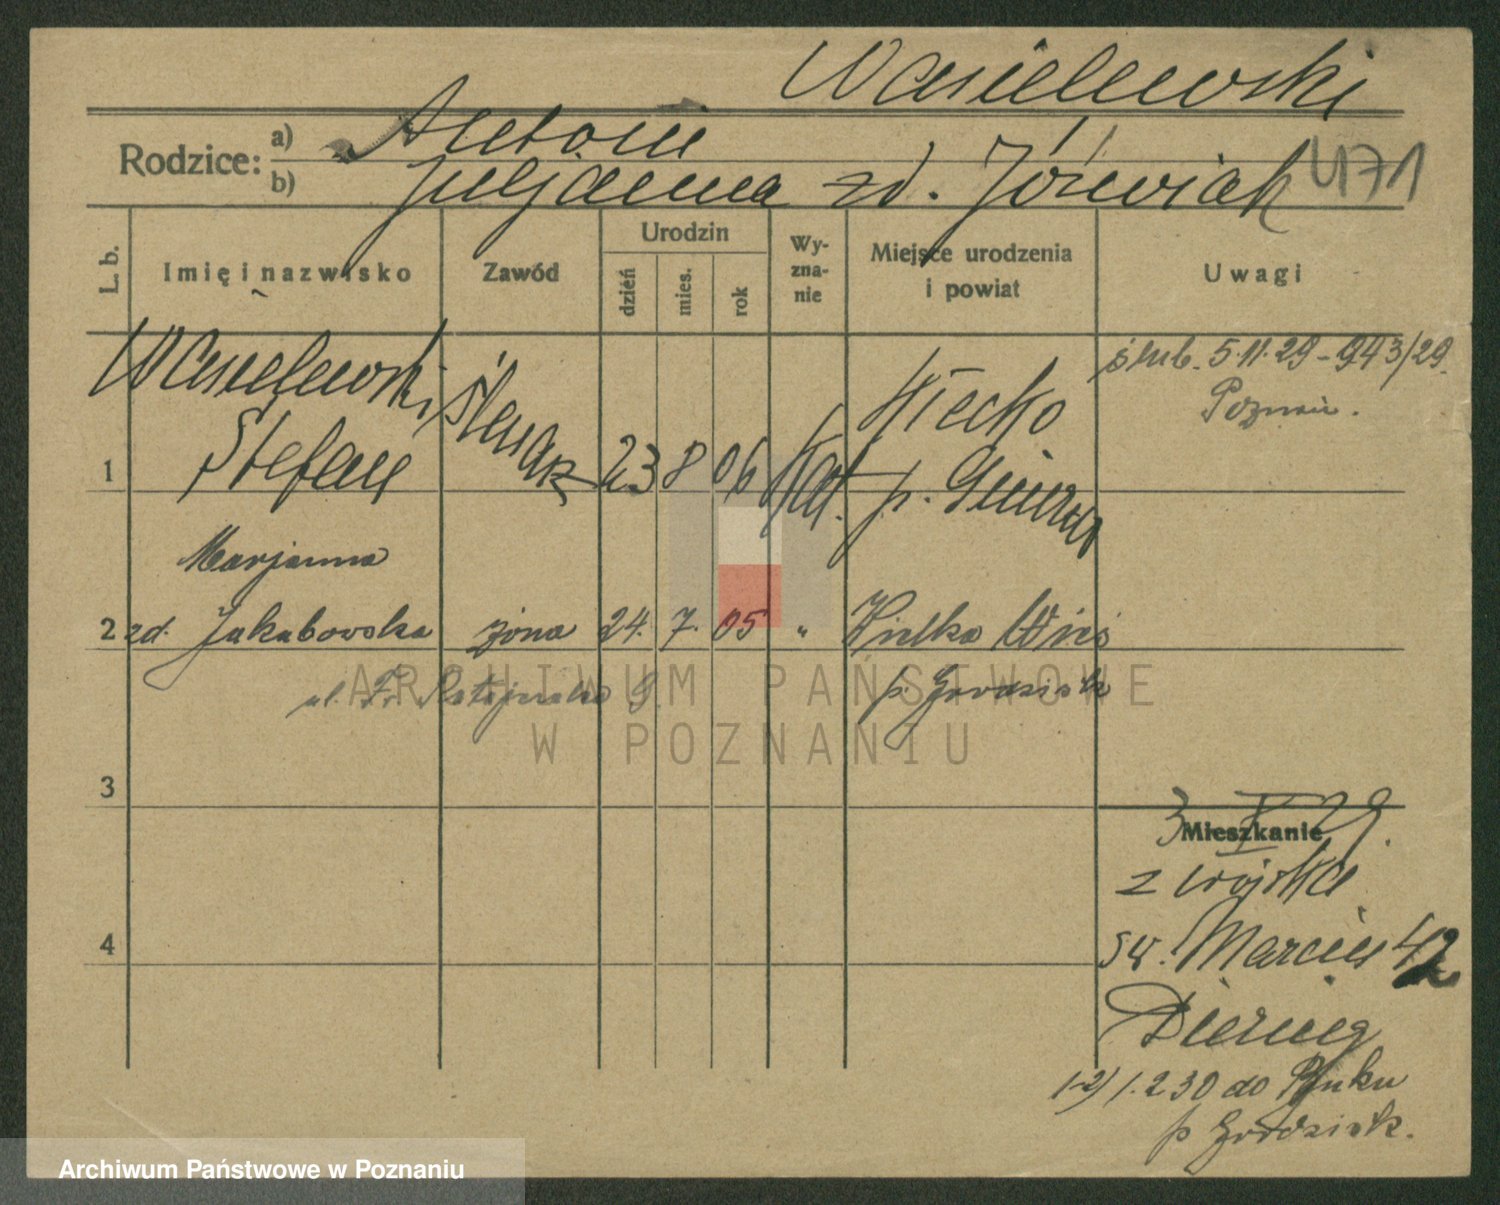 Wasielewski
Rodzice: a) Antoni
b) Juljanna zd. Jóźwiak 471
L. b. Imię i nazwisko Zawód Urodzin dzień mies. rok Wy-zna-nie Miejsce urodzenia i powiat Uwagi
1 Wasielewski Stefan Ślusarz 23 8 06 Kat. Kłecko p. Gniezno ślub. 5.11.29 - 943/29. Poznań.
2 Marjanna zd. Jakubowska żona 24. 7. 05 „ Wielka Wieś p. Grodzisk
ul. Fr. Ratajczaka
3
4
Mieszkanie
3 X 29.
z wojska
św. Marcin 42
1-2) 1.2.30 do
p Grodzisk.
ARCHIWUM PAŃSTWOWE
W POZNANIU
Archiwum Państwowe w Poznaniu